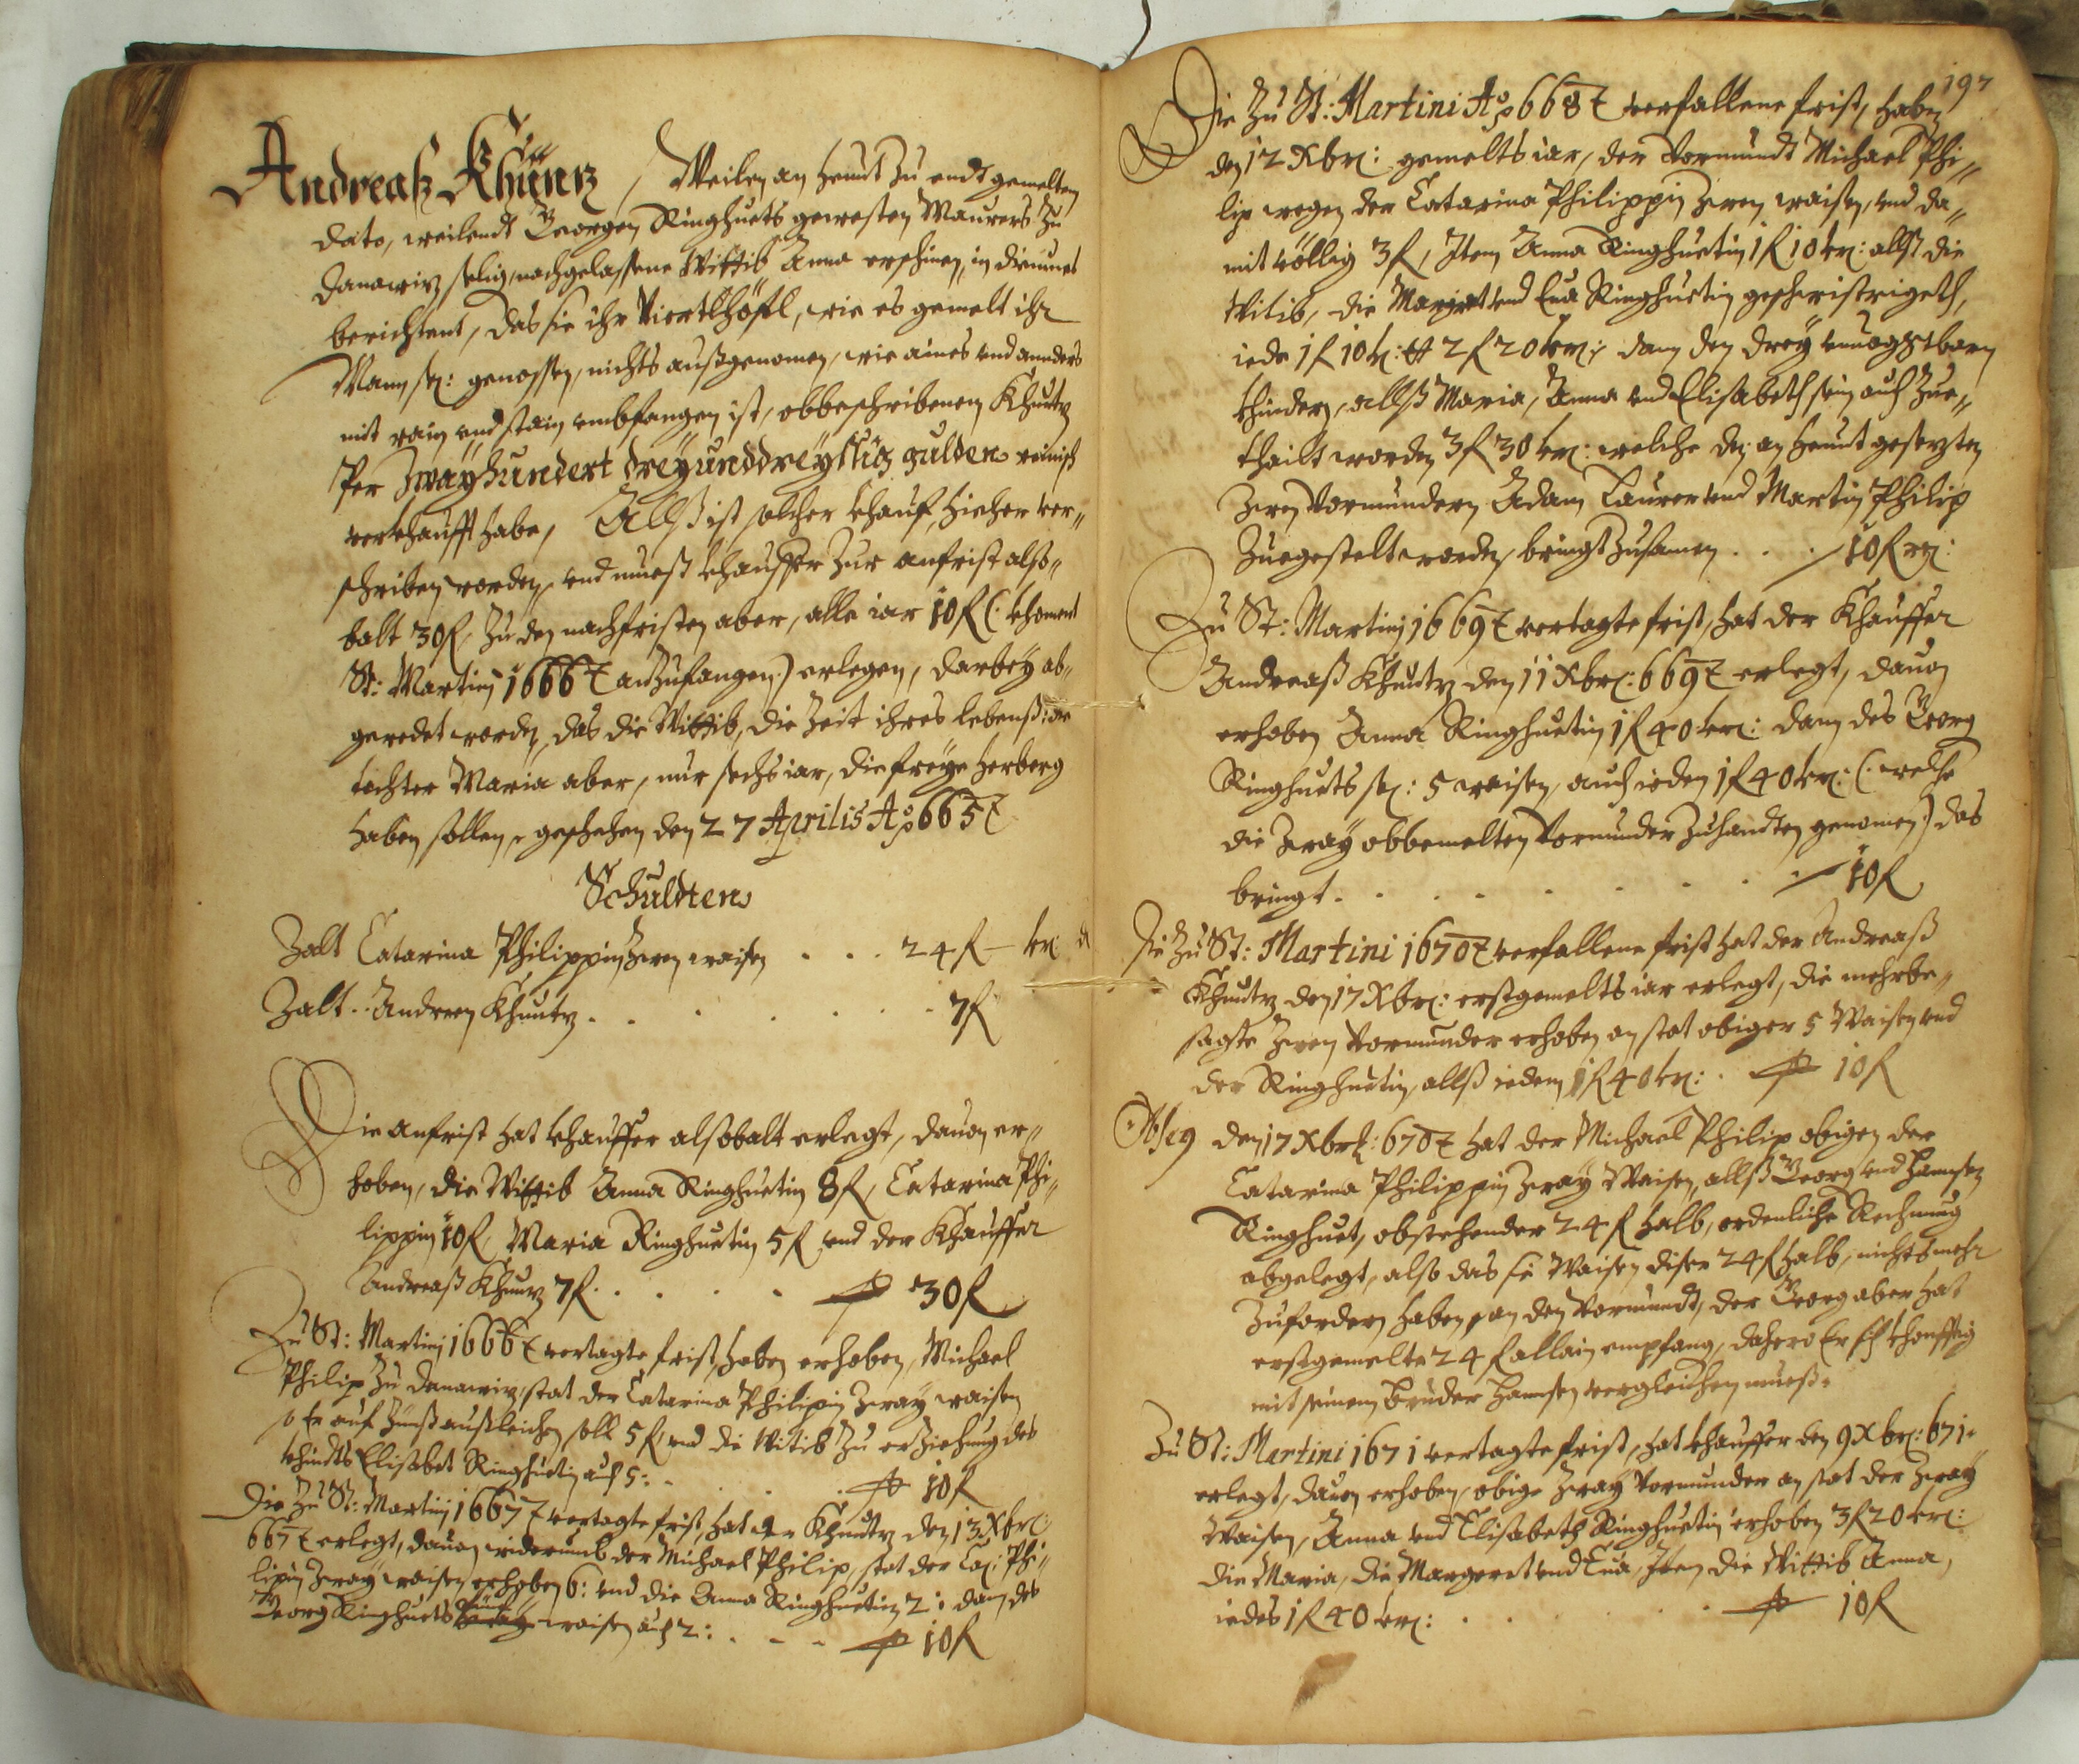 Andreaß Khüntz / Weilen an heunt zu endt gemelten
dato, weilendt Georgen Ringhuets gewesten Maurers zu
Danawiz selig, nachgelassene Wittib Anna erschinen, in
berichtent, das sie ihr Viertlhöfl, wie es gemelt ihr
Mann sel: genossen, nichts außgenomen, wie aines und annders
mit rain und stain umbfangen ist, obbeschribenem Khuntz
Per Zwayhundert dreyunddreyssig gulden reinisch
verkhaufft habe, Allß ist solcher khauf hieher ver„
schriben worden, und mueß khauffer zur anfrist also„
balt 30 f, zu den nachfristen aber, alle iar 10 f (: khoment
St: Martinj 1666 t anzufangen :) erlegen, darbey ab„
geredet worden, das die Wittib, die Zeit ihres lebenß, die
tochter Maria aber, nur sechs iar, die freye herberg
haben sollen, geschehen den 27 Aprilis Ao 665 t
Schuldten
Zalt Catarina Philippin zwen waisen . . . 24 f — kr: d
Zalt . . Andreen Khuntz . . . . . . . 7 f
Die anfrist hat khauffer alsobalt erlegt, davon er„
hoben, die Wittib Anna Ringhuetin 8 f, Catarina Phi„
lippin 10 f, Maria Ringhuetin 5 f und der Khauffer
Andreaß Khuntz 7 f . . . . 30 f
Zu St: Martinj 1666 t vertagte frist, haben erhoben, Michael
Philip zu Danawiz, stat der Catarina Philipin zway waisen
so Er auf Zinß außleichen soll 5 f, und die Witib zu erziehung des
khindts Elisabet Ringhuetin auch 5: . . . 10 f
Die zu St: Martinj 1667 t vertagte frist, hat der Khuntz den 13 Xbr:
667 t erlegt, davon widerumb der Michael Philip, stat der Ca: Phi„
lipin zway waisen erhoben 6: und die Anna Ringhuetin 2: dan des
Georg Ringhuets fünf waisen auch 2: . . . 10 f
197
Die zu St: Martini Ao 668 t verfallene frist, haben
den 12 Xbr: gemelts iar, der Vormundt Michael Phi„
lip wegen der Catarina Philippin zwen waisen, und da„
mit völlig 3 f, Item Anna Ringhuetin 1 f 10 kr: allß die
Witib, die Margret und Eva Ringhuetin
iede 1 f 10 kr: 2 f 20 kr: dann den drey
khindern, allß Maria, Anna und Elisabeth sein auch zue„
thailt worden 3 f 30 kr: welche den an heunt gesezten
zwen Vormundern Adam Laurer und Martin Philip
zuegestelt worden, bringt zusamen . . . 10 f r:
Zu St: Martinj 1669 t vertagte frist, hat der Khauffer
Andreaß Khuntz den 11 Xbr: 669 t erlegt, davon
erhoben Anna Ringhuetin 1 f 40 kr: dann des Georg
Ringhuets sel: 5 waisen, auch ieden 1 f 40 kr: (: welche
die zway obbemelten Vormunder zuhandten genomen :) das
bringt . . . . . . . 10 f
Die zu St: Martini 1670 t verfallene frist hat der Andreaß
Khuntz den 17 Xbr: erstgemelts iar erlegt, die mehrbe„
sagte zwen Vormunder erhoben an stat obiger 5 Waisen und
der Ringhuetin, allß iedem 1 f 40 kr: . 10 f
den 17 Xbr: 670 t hat der Michael Philip obigen der
Catarina Philippin zway Waisen, allß Georg und Hannsen
Ringhuet, obstehender 24 f halb, ordenliche Rechnung
abgelegt, also das sie Waisen diser 24 f halb, nichts mehr
zufordern haben, an den Vormundt, der Georg aber hat
erstgemelte 24 f allain empfang, dahero Er sich khonfftig
mit seinem Bruder Hannsen vergleichen mueß.
Zu St: Martini 1671 vertagte frist, hat khauffer den 9 Xbr: 671.
erlegt, davon erhoben, obige zway Vormunder an stat der zway
Waisen, Anna und Elisabeth Ringhuetin erhoben 3 f 20 kr:
die Maria, die Margeret und Eva, Item die Wittib Anna,
iedes 1 f 40 kr: . . . . . 10 f